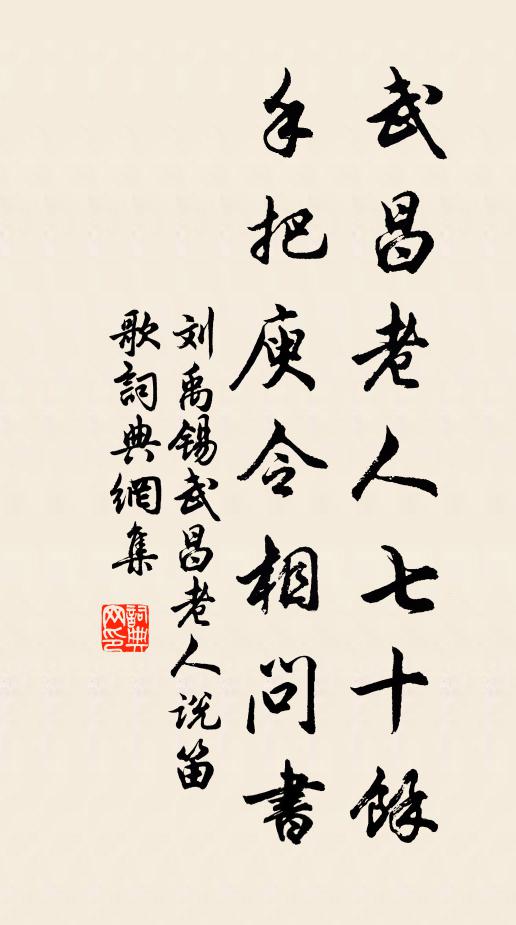 武昌老人七十餘
手把庾令相問書
刘禹锡武昌老人说笛
歌詞典網集
詞典网印